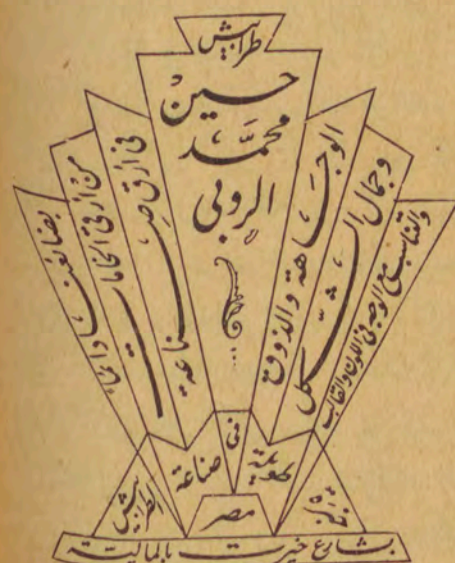 طرابيش
حسين
محمد
الروبى
الوجاهة والذوق
وجمال الشكل
والتناسب مع الوجه فى اللون والقالب
فى أرقى صناعة
من أرقى الخامات
فى
صناعة
الطرابيش
مصر
بشارع خيرت بالمالية